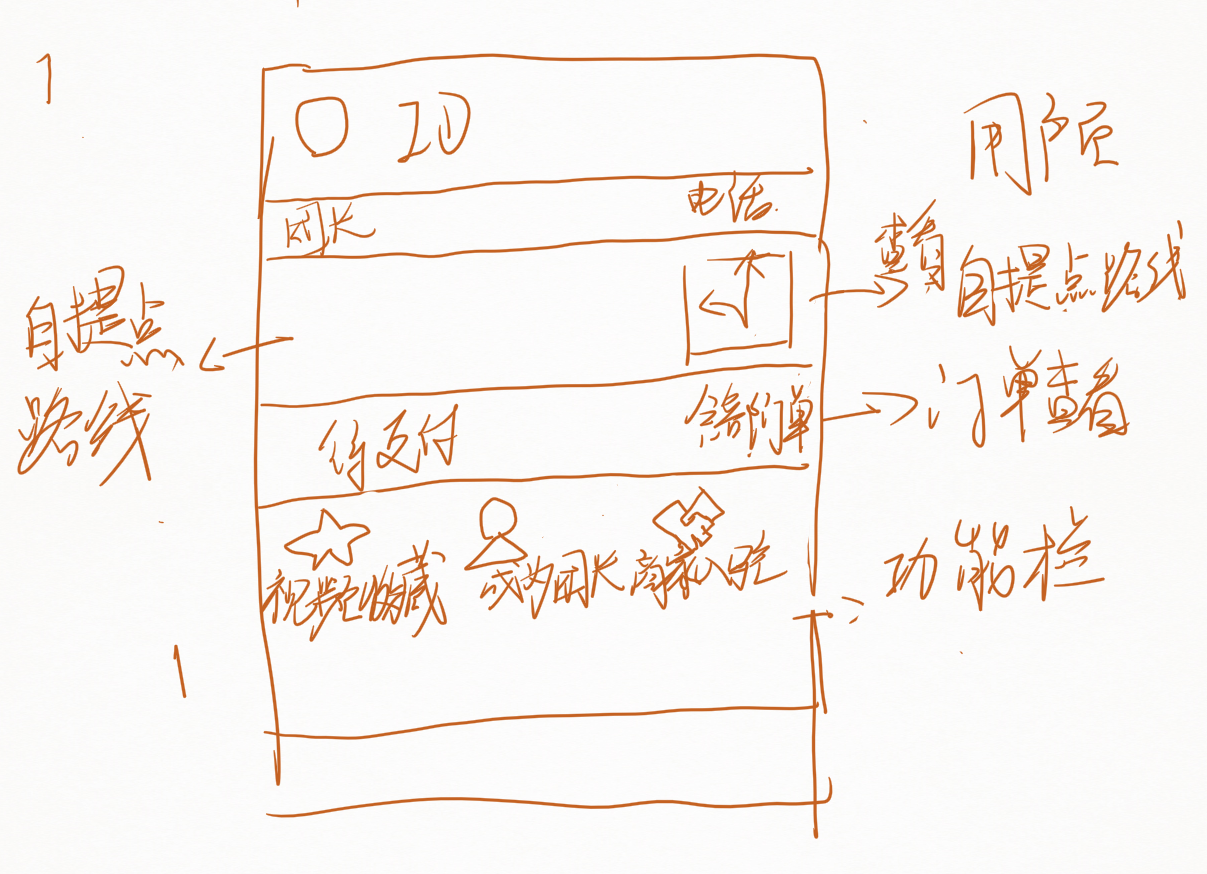 1
ID
用户页
团长
电话
查看
自提点路线
自提点
路线
待支付
全部订单
订单查看
视频收藏
成为团长
商家入驻
功能栏
1